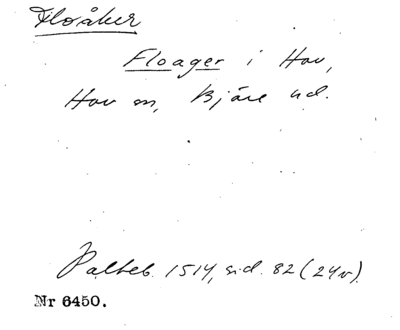 Floåker
Floager i Hov,
Hov sn, Bjäre hd.
Palteb. 1514, sid. 82 (24v).
Nr 6450.